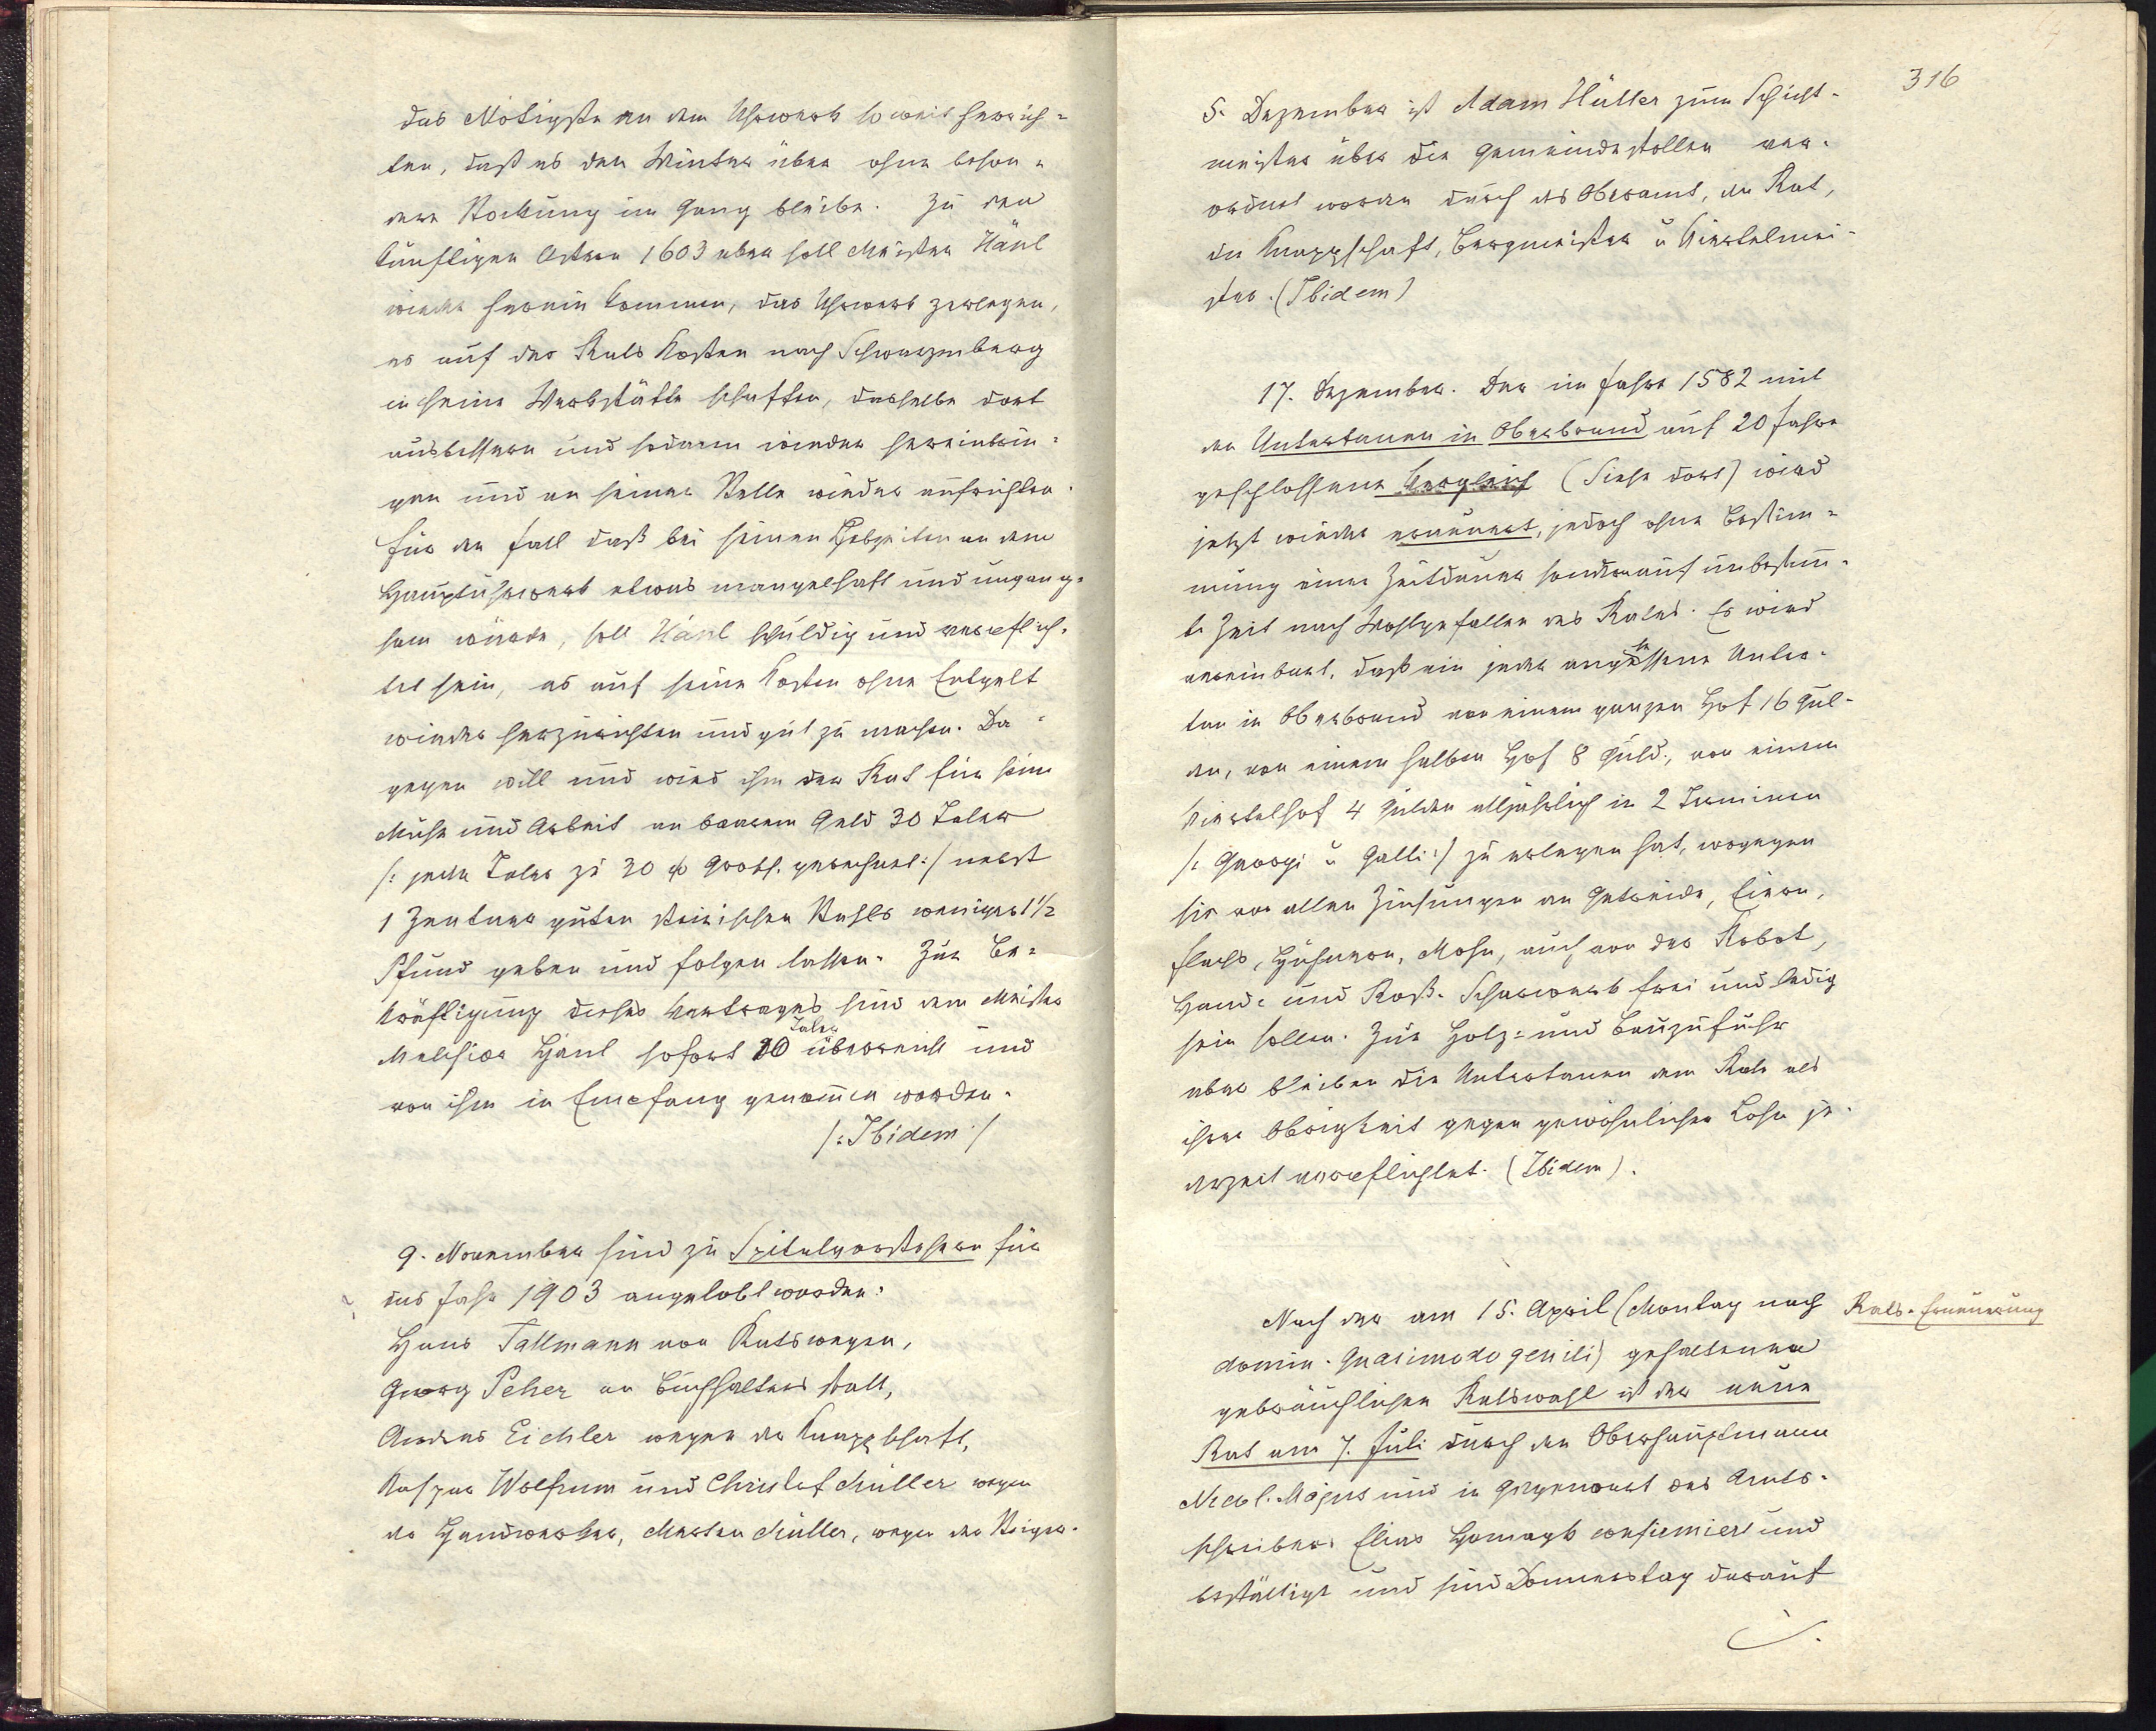 das Nötigste an dem Uhrwerk so weit herrich=
ten, daß es den Winter über ohne beson=
dere Stockung im Gang bleibe. Zu den
künftigen Ostern 1603 aber soll Meister Hänl
wieder herein kommen, das Uhrwerk zerlegen,
es auf des Rats Kosten nach Schwarzenberg
in seine Werkstätte schaffen, dasselbe dort
ausbessern und sodann wieder hereinbrin=
gen und an seiner Stelle wieder aufrichten.
Für den Fall daß bei seinen Lebzeiten an dem
Hauptuhrwerk etwas mangelhaft und ungang=
sam würde, soll Hänl schuldig und verpflich=
tet sein, es auf seine Kosten ohne Entgelt
wieder herzurichten und gut zu machen. Da=
gegen will und wird ihm der Rat für seine
Mühe und Arbeit an baarem Geld 30 Taler
/: jeden Taler zu 30 Grosch. gerechnet :/ nebst
1 Zentner guten steirischen Stahls weniger 1 1/2
Pfund geben und folgen lassen. Zur Be=
kräftigung dieses Vertrages sind dem Meister
Melchior Hänl sofort 10 Taler überreicht und
von ihm in Empfang genom̄en worden.
/: Ibidem :/
9. November sind zu Spitalvorstehern für
das Jahr 1903 angelobt worden:
Hans Tallmann von Ratswegen,
Georg Peher an Buchhalters statt,
Andreas Eichler wegen der Knappschaft,
Kaspar Wolfrum und Christof Müller wegen
der Handwerker, Merten Müller, wegen der Steiger.
316
5. Dezember ist Adam Hüller zum Schicht=
meister über die Gemeindestollen ver=
ordnet worden durch das Oberamt, den Rat,
die Knappschaft, Bergmeister u Viertelmei=
ster. (Ibidem)
17. Dezember. Der im Jahre 1582 mit
den Untertanen in Oberbrand auf 20 Jahre
geschlossene Vergleich (Siehe dort) wird
jetzt wieder erneuert, jedoch ohne Bestim=
mung einer Zeitdauer sondern auf unbestim̄=
te Zeit nach Wohlgefallen des Rates. Es wird
vereinbart, daß ein jeder angesessene Unter=
tan in Oberbrand von einem ganzen Hof 16 Gul=
den, von einem halben Hof 8 Guld., von einem
Viertelhof 4 Gulden alljährlich in 2 Terminen
/: Georgi u Galli :/ zu erlegen hat, wogegen
sie von allen Zinsungen an Getreide, Eiern,
Flachs, Hühnern, Mohn, auch von der Robot,
Hand= und Roß=Scharwerk frei und ledig
sein sollen. Zur Holz= und Bauzufuhr
aber bleiben die Untertanen dem Rate als
ihrer Obrigkeit gegen gewöhnlichen Lohn je=
derzeit verpflichtet. (Ibidem).
Rats=Erneuerung
Nach der am 15. April (Montag nach
domin. Quasimodo geniti) gehaltenen
gebräuchlichen Ratswahl ist der neue
Rat am 7. Juli durch den Oberhauptmann
Nickl. Majus und in Gegenwart des Amts=
schreibers Elias confirmiert und
bestättigt und sind Donnerstag darauf